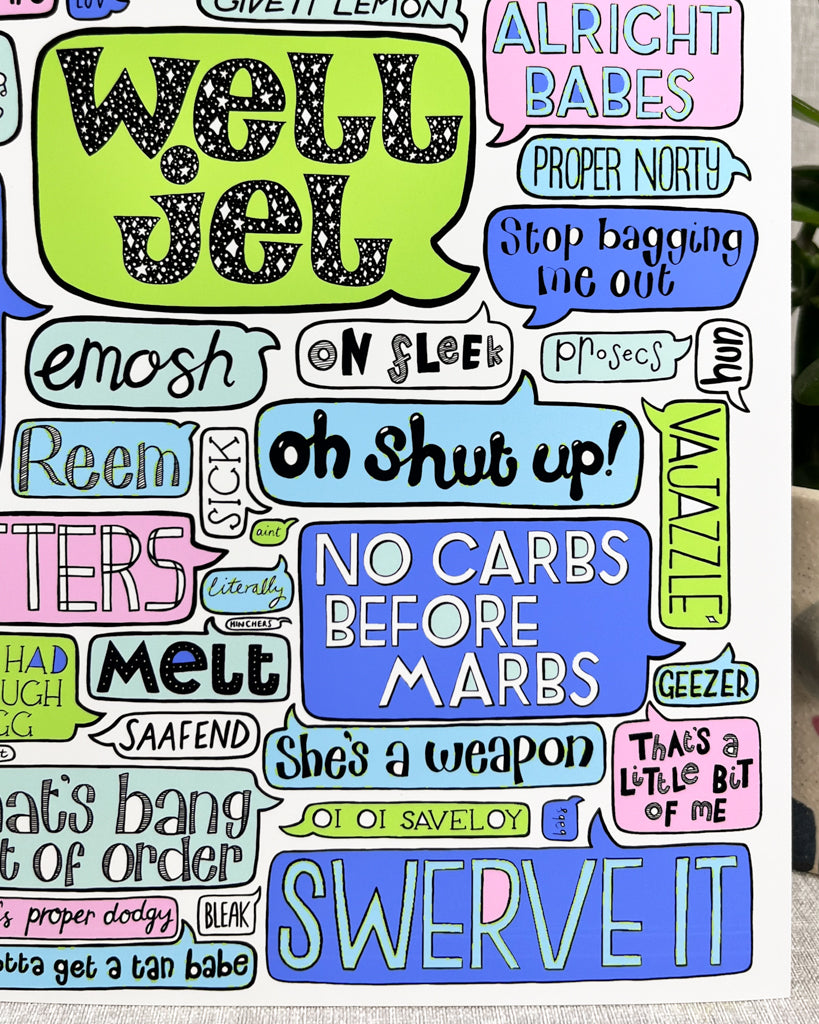 GIVE IT LEMON
LUV
ALRIGHT
BABES
well
jel
PROPER NORTY
Stop bagging
me out
emosh
ON FLEEK
Prosecs
hun
Reem
SICK
oh shut up!
VAJAZZLE
aint
TTERS
literally
NO CARBS
BEFORE
MARBS
HINCHERS
HAD
UGH
GG
Melt
GEEZER
SAAFEND
She's a weapon
That's a
Little Bit
of me
hat's bang
t of order
OI OI SAVELOY
bebs
SWERVE IT
's proper dodgy
BLEAK
otta get a tan babe